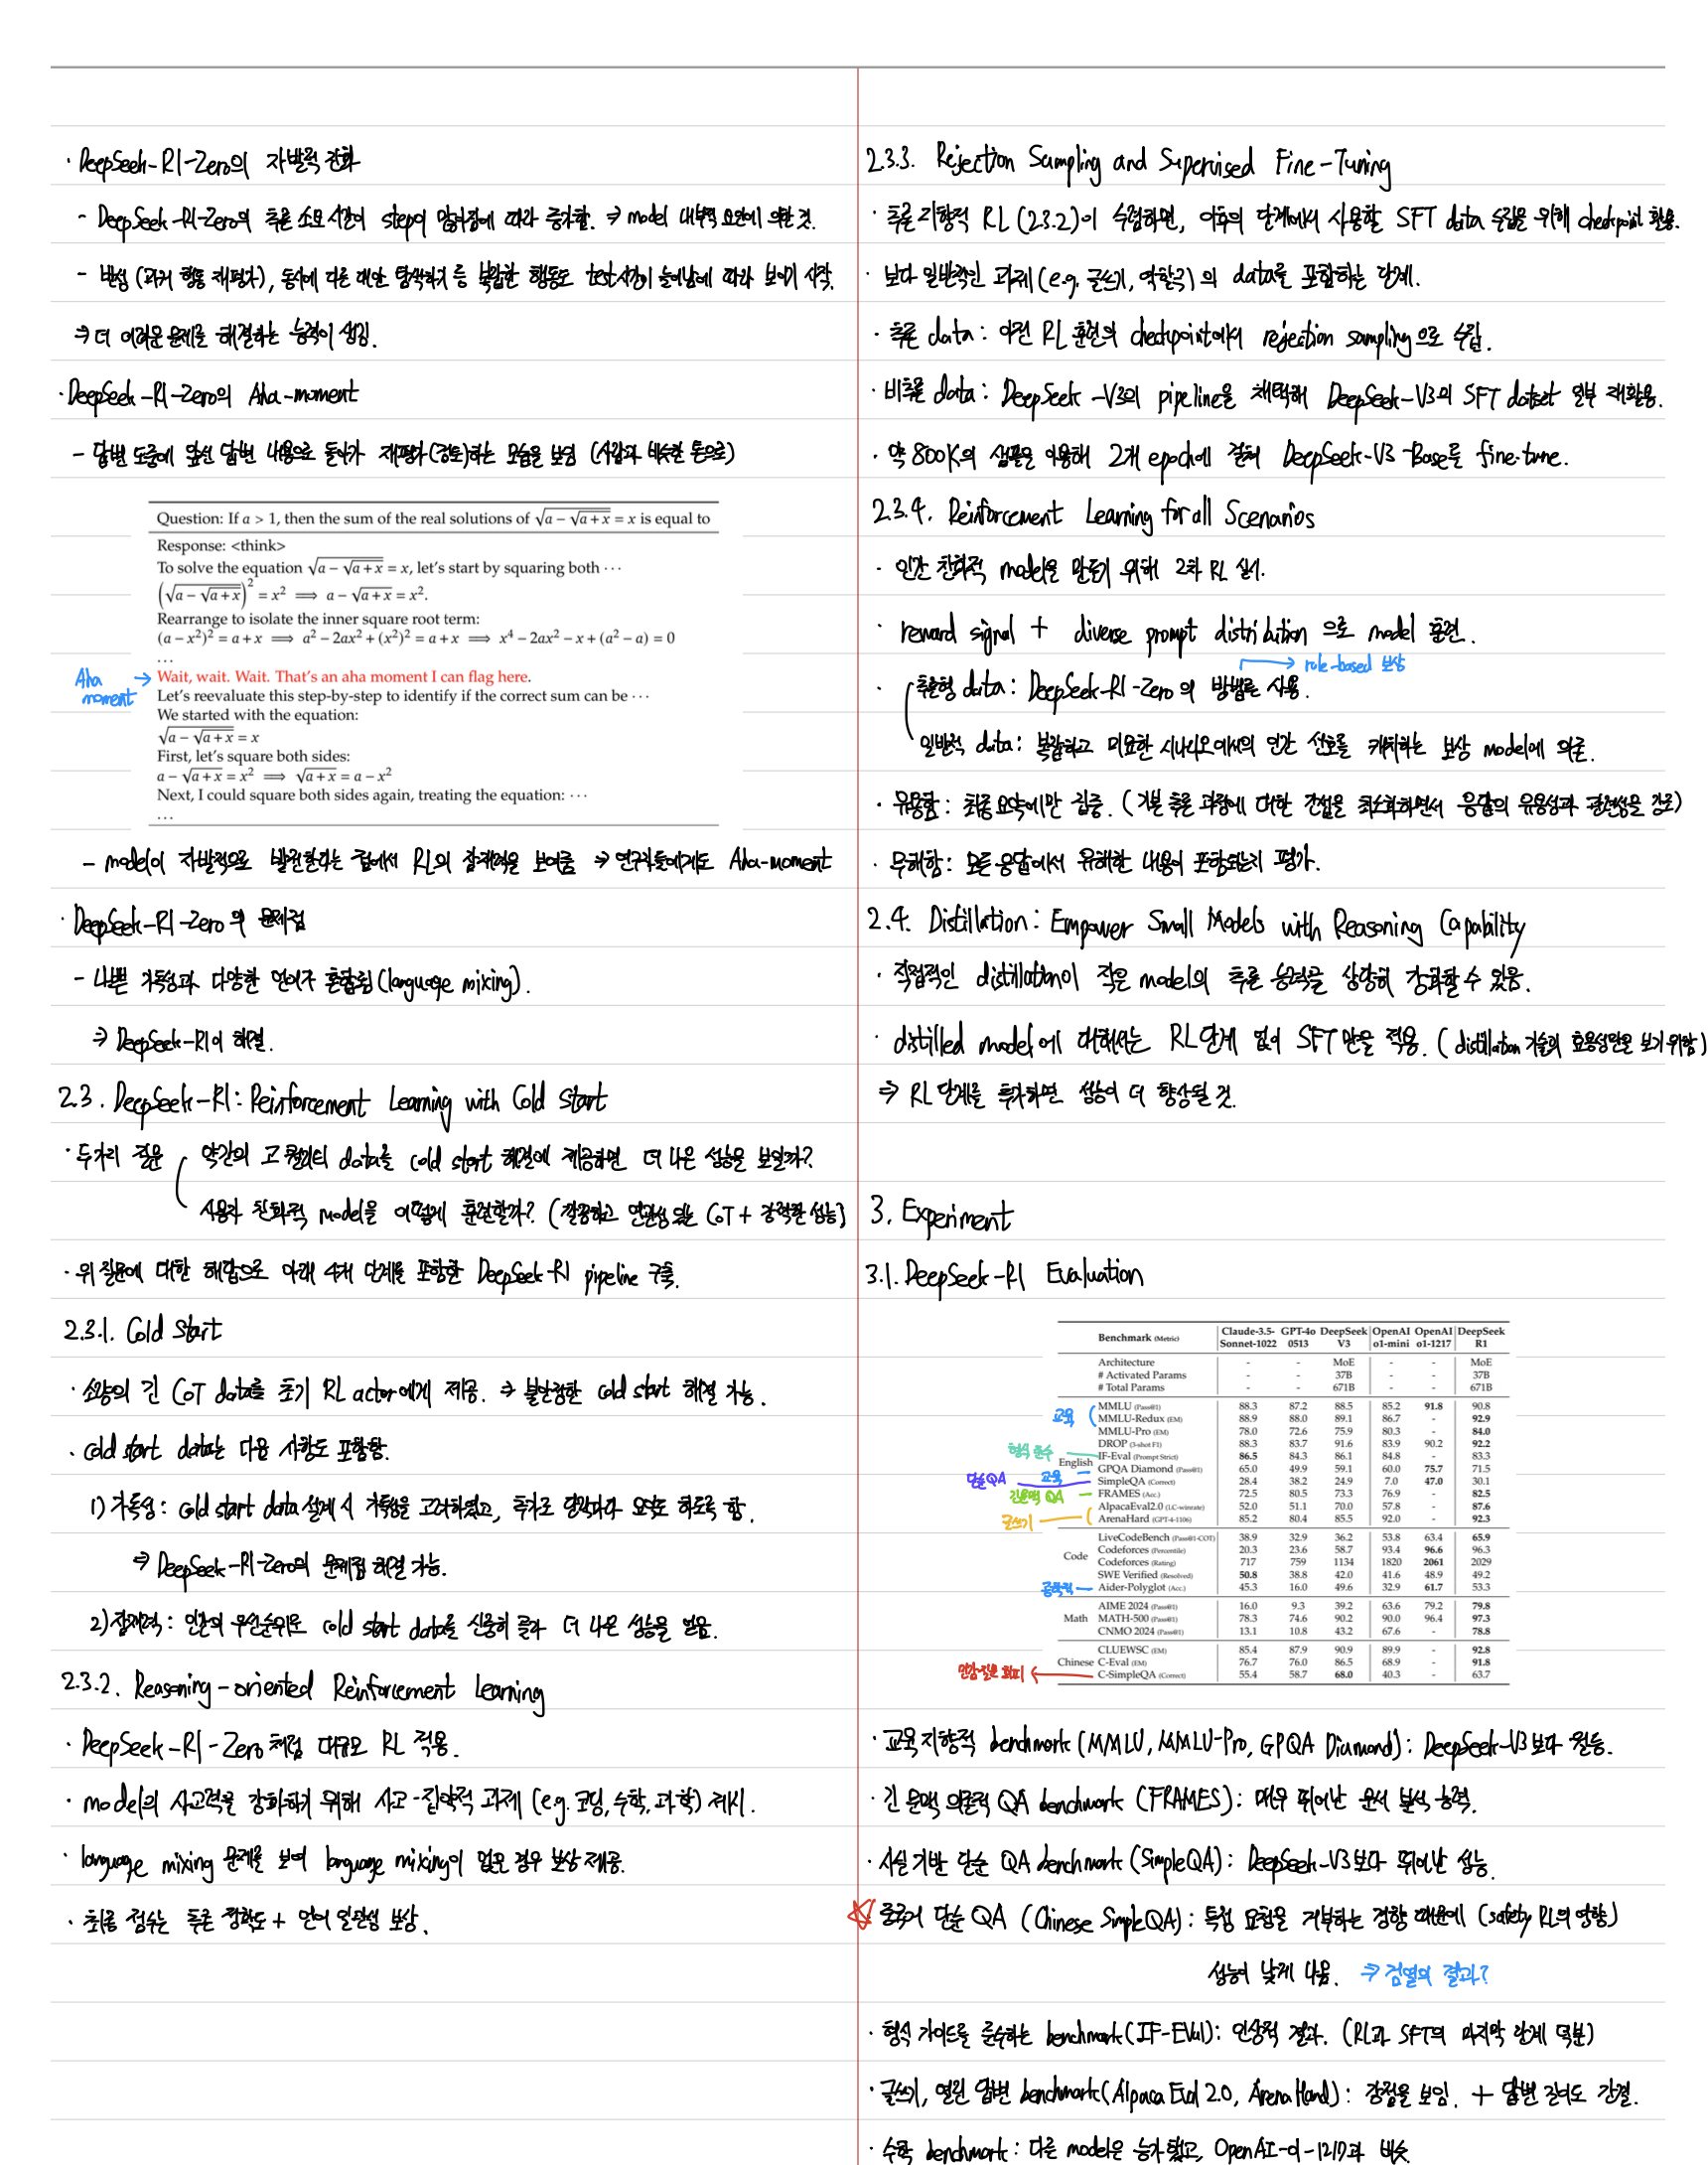 · DeepSeek-R1-Zero의 자발적 진화
- DeepSeek-R1-Zero의 추론 소모 시간이 step이 많아짐에 따라 증가함. ⇒ model 내부적 요인에 의한 것.
- 반성 (과거 행동 재평가), 동시에 다른 대안 탐색하기 등 복잡한 행동도 test시간이 늘어남에 따라 보이기 시작.
⇒ 더 어려운 문제를 해결하는 능력이 생김.
· DeepSeek-R1-Zero의 Aha-moment
- 답변 도중에 앞선 답변 내용으로 돌아가 재평가(검토)하는 모습을 보임 (사람과 비슷한 톤으로)
Question: If a > 1, then the sum of the real solutions of √(a − √(a + x)) = x is equal to
Response: <think>
To solve the equation √(a − √(a + x)) = x, let's start by squaring both ···
(√(a − √(a + x)))² = x² ⟹ a − √(a + x) = x².
Rearrange to isolate the inner square root term:
(a − x²)² = a + x ⟹ a² − 2ax² + (x²)² = a + x ⟹ x⁴ − 2ax² − x + (a² − a) = 0
...
Aha moment → Wait, wait. Wait. That's an aha moment I can flag here.
Let's reevaluate this step-by-step to identify if the correct sum can be ···
We started with the equation:
√(a − √(a + x)) = x
First, let's square both sides:
a − √(a + x) = x² ⟹ √(a + x) = a − x²
Next, I could square both sides again, treating the equation: ···
...
- model이 자발적으로 발전한다는 점에서 RL의 잠재력을 보여줌 ⇒ 연구자들에게도 Aha-moment
· DeepSeek-R1-Zero의 문제점
- 나쁜 가독성과 다양한 언어가 혼합됨(language mixing).
⇒ DeepSeek-R1이 해결.
2.3. DeepSeek-R1: Reinforcement Learning with Cold Start
· 두가지 질문 약간의 고퀄리티 data를 cold start 해결에 제공하면 더 나은 성능을 보일까?
사용자 친화적 model을 어떻게 훈련할까? (깔끔하고 연관성 있는 CoT + 강력한 성능)
· 위 질문에 대한 해답으로 아래 4개 단계를 포함한 DeepSeek-R1 pipeline 구축.
2.3.1. Cold Start
· 소량의 긴 CoT data를 초기 RL actor에게 제공. ⇒ 불안정한 cold start 해결 가능.
· cold start data는 다음 사항도 포함함.
1) 가독성: cold start data 설계 시 가독성을 고려하였고, 추가로 답변마다 요약도 하도록 함.
⇒ DeepSeek-R1-Zero의 문제점 해결 가능.
2) 잠재력: 인간의 우선순위로 cold start data를 신중히 골라 더 나은 성능을 얻음.
2.3.2. Reasoning-oriented Reinforcement Learning
· DeepSeek-R1-Zero처럼 대규모 RL 적용.
· model의 사고력을 강화하기 위해 사고-집약적 과제 (e.g. 코딩, 수학, 과학) 제시.
· language mixing 문제를 보여 language mixing이 없은 경우 보상 제공.
· 최종 점수는 추론 정확도 + 언어 일관성 보상.
2.3.3. Rejection Sampling and Supervised Fine-Tuning
· 추론 지향적 RL (2.3.2)이 수렴하면, 이후의 단계에서 사용할 SFT data 수집을 위해 checkpoint 활용.
· 보다 일반적인 과제(e.g. 글쓰기, 역할극)의 data를 포함하는 단계.
· 추론 data: 이전 RL 훈련의 checkpoint에서 rejection sampling으로 수집.
· 비추론 data: DeepSeek-V3의 pipeline을 채택해 DeepSeek-V3의 SFT dataset 일부 재활용.
· 약 800K의 샘플을 이용해 2개 epoch에 걸쳐 DeepSeek-V3-Base를 fine-tune.
2.3.4. Reinforcement Learning for all Scenarios
· 인간 친화적 model을 만들기 위해 2차 RL 실시.
· reward signal + diverse prompt distribution으로 model 훈련.
→ role-based 보상
· 추론형 data: DeepSeek-R1-Zero의 방법론 사용.
일반적 data: 복잡하고 미묘한 시나리오에서의 인간 선호를 캐치하는 보상 model에 의존.
· 유용함: 최종 요약에만 집중. (기본 추론 과정에 대한 간섭을 최소화하면서 응답의 유용성과 관련성을 강조)
· 무해함: 모든 응답에서 유해한 내용이 포함되는지 평가.
2.4. Distillation: Empower Small Models with Reasoning Capability
· 직접적인 distillation이 작은 model의 추론 능력을 상당히 강화할 수 있음.
· distilled model에 대해서는 RL단계 없이 SFT만을 적용. (distillation 기술의 효용성만을 보기 위함)
⇒ RL 단계를 추가하면 성능이 더 향상될 것.
3. Experiment
3.1. DeepSeek-R1 Evaluation
Benchmark (Metric) Claude-3.5-Sonnet-1022 GPT-4o 0513 DeepSeek V3 OpenAI o1-mini OpenAI o1-1217 DeepSeek R1
Architecture - - MoE - - MoE
# Activated Params - - 37B - - 37B
# Total Params - - 671B - - 671B
교육 MMLU (Pass@1) 88.3 87.2 88.5 85.2 91.8 90.8
MMLU-Redux (EM) 88.9 88.0 89.1 86.7 - 92.9
MMLU-Pro (EM) 78.0 72.6 75.9 80.3 - 84.0
DROP (3-shot F1) 88.3 83.7 91.6 83.9 90.2 92.2
형식 준수 IF-Eval (Prompt Strict) 86.5 84.3 86.1 84.8 - 83.3
English 교육 GPQA Diamond (Pass@1) 65.0 49.9 59.1 60.0 75.7 71.5
단순QA SimpleQA (Correct) 28.4 38.2 24.9 7.0 47.0 30.1
긴문맥 QA FRAMES (Acc.) 72.5 80.5 73.3 76.9 - 82.5
글쓰기 AlpacaEval2.0 (LC-winrate) 52.0 51.1 70.0 57.8 - 87.6
ArenaHard (GPT-4-1106) 85.2 80.4 85.5 92.0 - 92.3
LiveCodeBench (Pass@1-COT) 38.9 32.9 36.2 53.8 63.4 65.9
Code Codeforces (Percentile) 20.3 23.6 58.7 93.4 96.6 96.3
Codeforces (Rating) 717 759 1134 1820 2061 2029
SWE Verified (Resolved) 50.8 38.8 42.0 41.6 48.9 49.2
공학적 Aider-Polyglot (Acc.) 45.3 16.0 49.6 32.9 61.7 53.3
AIME 2024 (Pass@1) 16.0 9.3 39.2 63.6 79.2 79.8
Math MATH-500 (Pass@1) 78.3 74.6 90.2 90.0 96.4 97.3
CNMO 2024 (Pass@1) 13.1 10.8 43.2 67.6 - 78.8
CLUEWSC (EM) 85.4 87.9 90.9 89.9 - 92.8
Chinese C-Eval (EM) 76.7 76.0 86.5 68.9 - 91.8
민감 질문 회피 ← C-SimpleQA (Correct) 55.4 58.7 68.0 40.3 - 63.7
· 교육 지향적 benchmark (MMLU, MMLU-Pro, GPQA Diamond): DeepSeek-V3보다 월등.
· 긴 문맥 의존적 QA benchmark (FRAMES): 매우 뛰어난 문서 분석 능력.
· 사실 기반 단순 QA benchmark (SimpleQA): DeepSeek-V3보다 뛰어난 성능.
☆ 중국어 단순 QA (Chinese SimpleQA): 특정 요청을 거부하는 경향 때문에 (safety RL의 영향)
성능이 낮게 나옴. ⇒ 검열의 결과?
· 형식 가이드를 준수하는 benchmark (IF-Eval): 인상적 결과. (RL과 SFT의 마지막 단계 덕분)
· 글쓰기, 열린 답변 benchmark (Alpaca Eval 2.0, Arena Hard): 강점을 보임. + 답변 길이도 간결.
· 수학 benchmark: 다른 model은 능가했고, OpenAI-o1-1217과 비슷